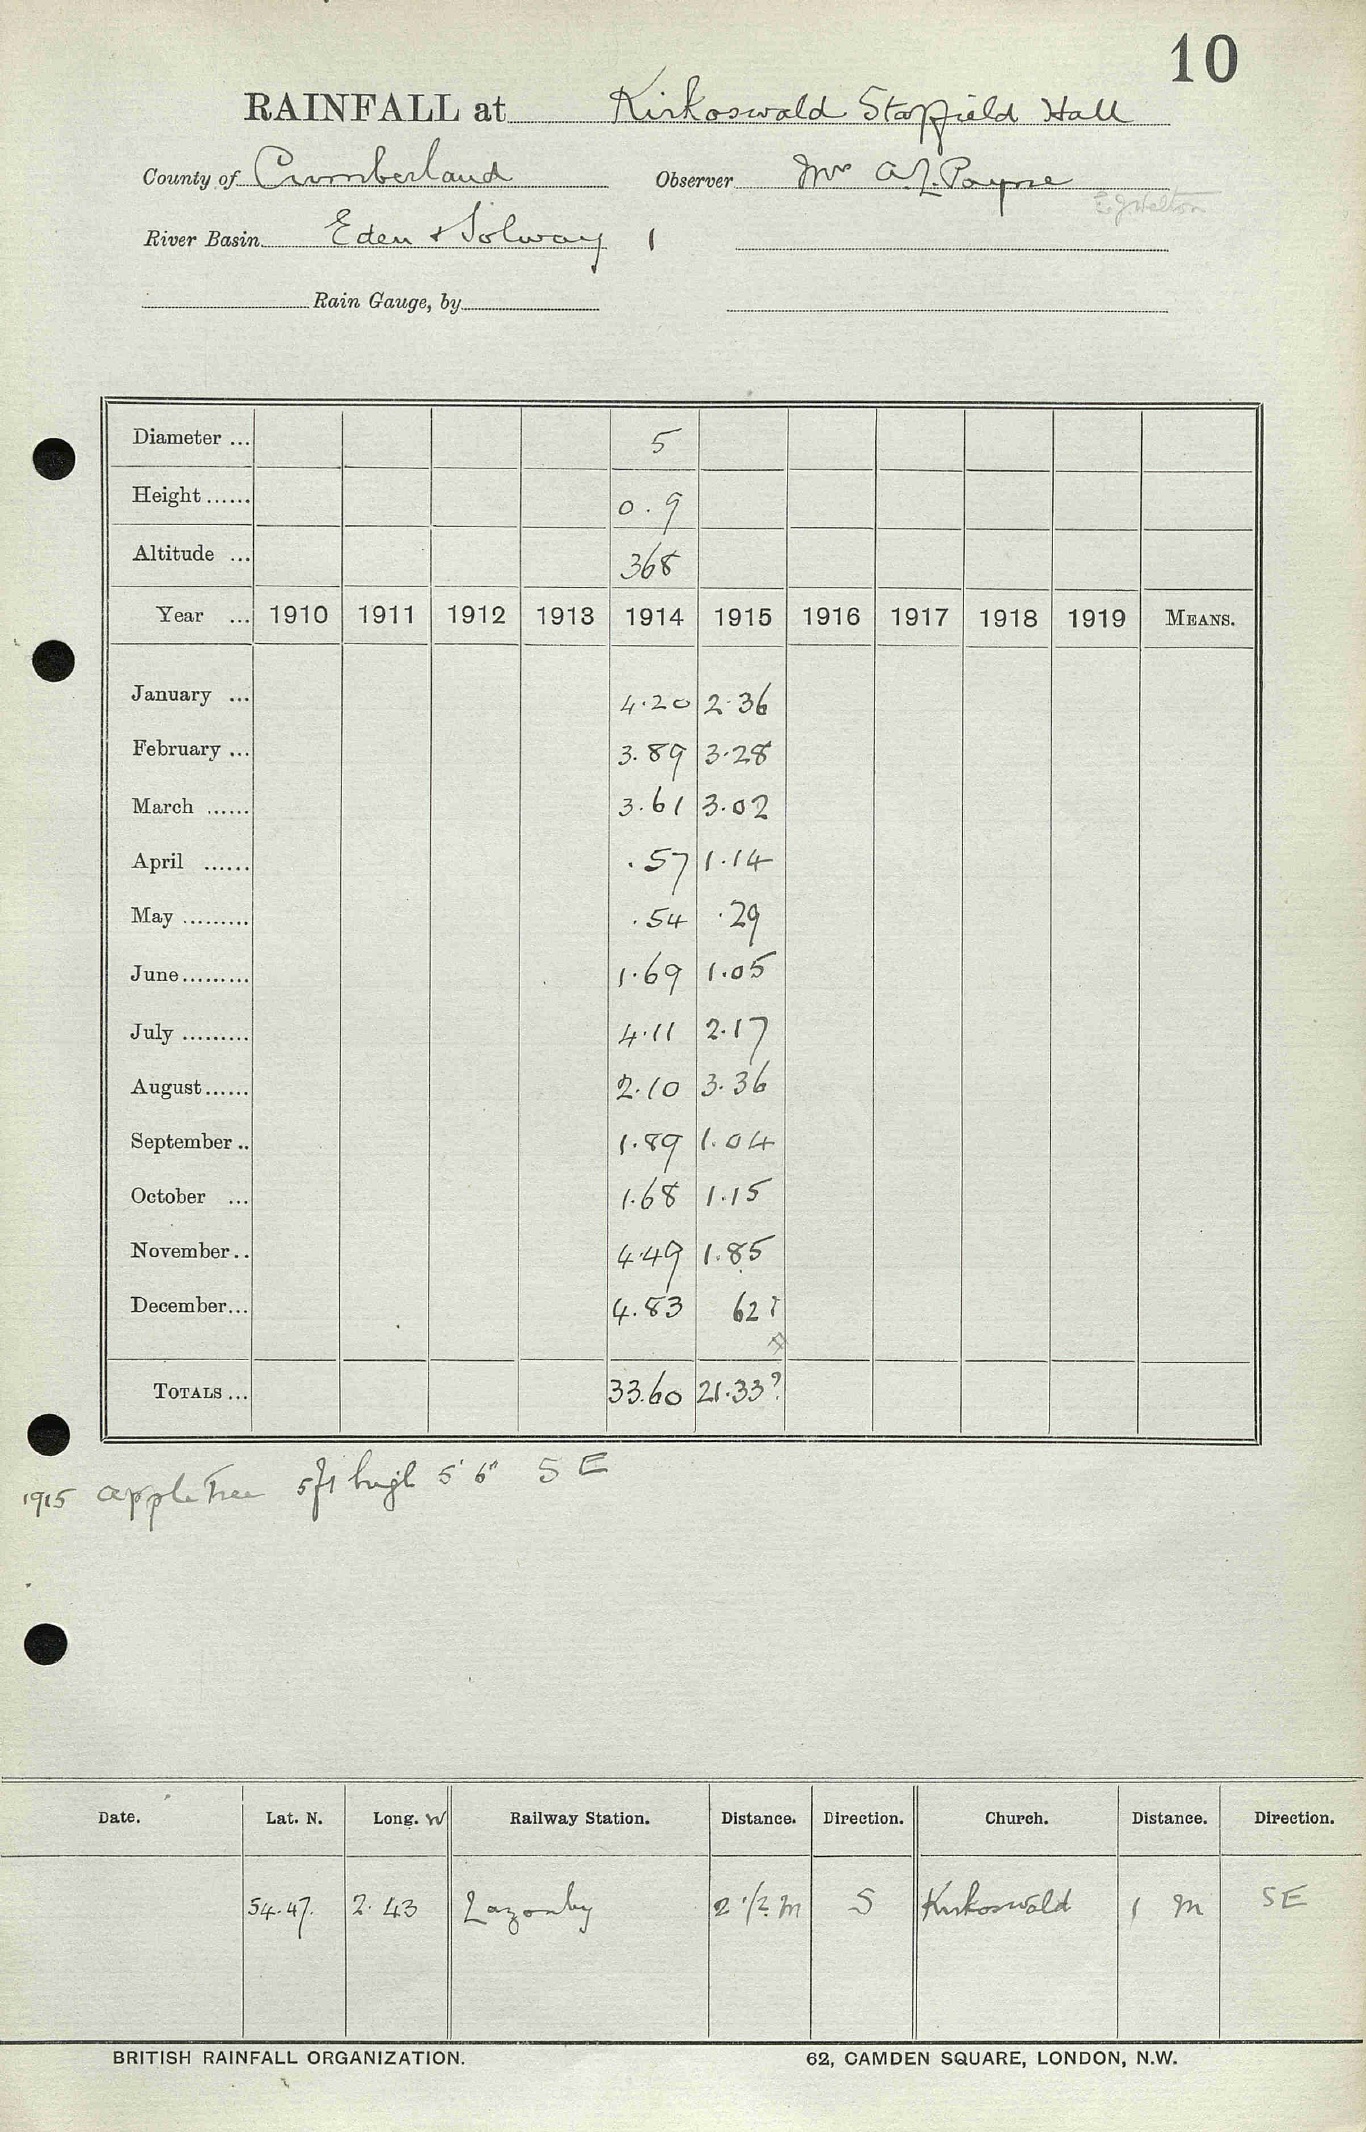 10
RAINFALL at Kirkoswald Staffield Hall
County of Cumberland Observer Mrs A.L. Payne
E. J. Welton
River Basin Eden & Solway 1
Rain Gauge, by
Diameter ... 5
Height ...... 0.9
Altitude ... 368
Year ... 1910 1911 1912 1913 1914 1915 1916 1917 1918 1919 MEANS.
January ... 4.20 2.36
February ... 3.89 3.28
March ...... 3.61 3.02
April ...... .57 1.14
May ......... .54 .29
June ......... 1.69 1.05
July ......... 4.11 2.17
August ...... 2.10 3.36
September .. 1.89 1.04
October ... 1.68 1.15
November .. 4.49 1.85
December ... 4.83 62 ?
TOTALS ... 33.60 21.33?
1915 apple Tree 5ft high 5' 6" SE
Date. Lat. N. Long. W Railway Station. Distance. Direction. Church. Distance. Direction.
54.47. 2.43 Lazonby 2 1/2 m S Kirkoswald 1 m SE
BRITISH RAINFALL ORGANIZATION. 62, CAMDEN SQUARE, LONDON, N.W.